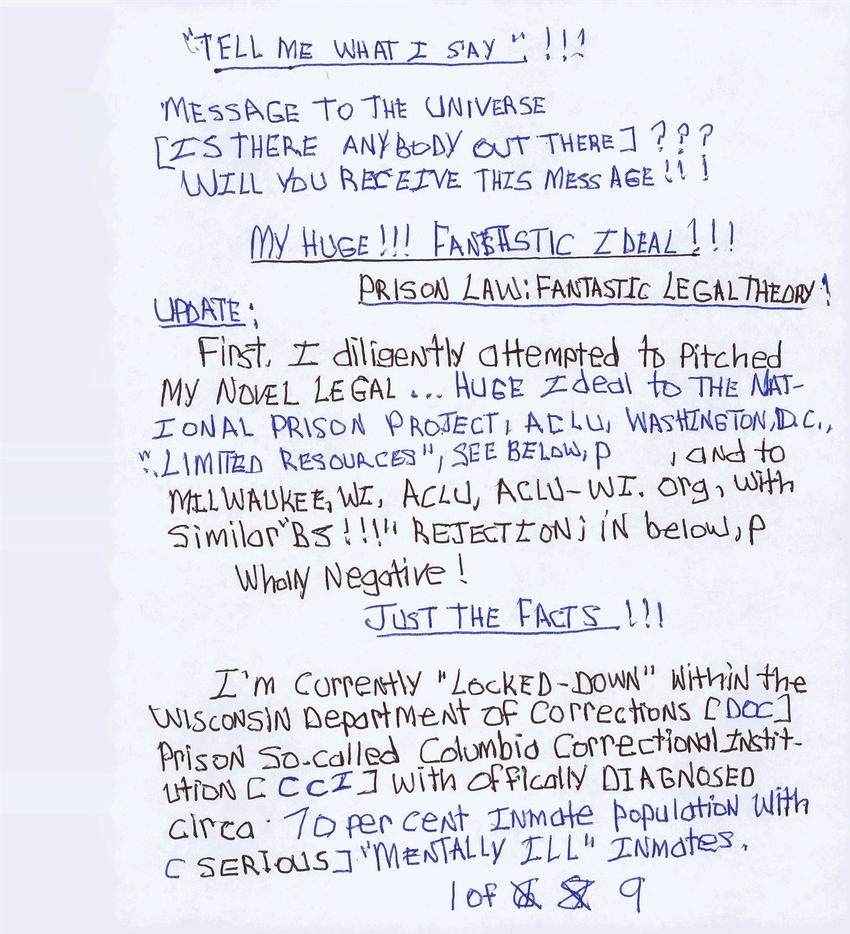 "TELL ME WHAT I SAY" !!!
MESSAGE TO THE UNIVERSE
[IS THERE ANYBODY OUT THERE] ???
WILL YOU RECEIVE THIS MESSAGE !!!
MY HUGE!!! FANTASTIC IDEAL!!!
PRISON LAW: FANTASTIC LEGAL THEORY!
UPDATE:
First, I diligently attempted to Pitched
MY NOVEL LEGAL ... HUGE Ideal to THE NAT-
IONAL PRISON PROJECT, ACLU, WASHINGTON, D.C.,
"LIMITED RESOURCES", SEE BELOW, P , and to
MILWAUKEE, WI, ACLU, ACLU-WI. Org, with
Similar "BS !!!" REJECTION; iN below, P
Wholly Negative!
JUST THE FACTS !!!
I'm Currently "LOCKED-DOWN" WithiN the
WISCONSIN DepartMENT OF Corrections [DOC]
PrisoN So-called Columbia Correctional Instit-
ution [CCI] with offically DIAGNOSED
circa 70 per cent INmate population with
[SERIOUS] "MENTALLY ILL" INmates.
1 of 9